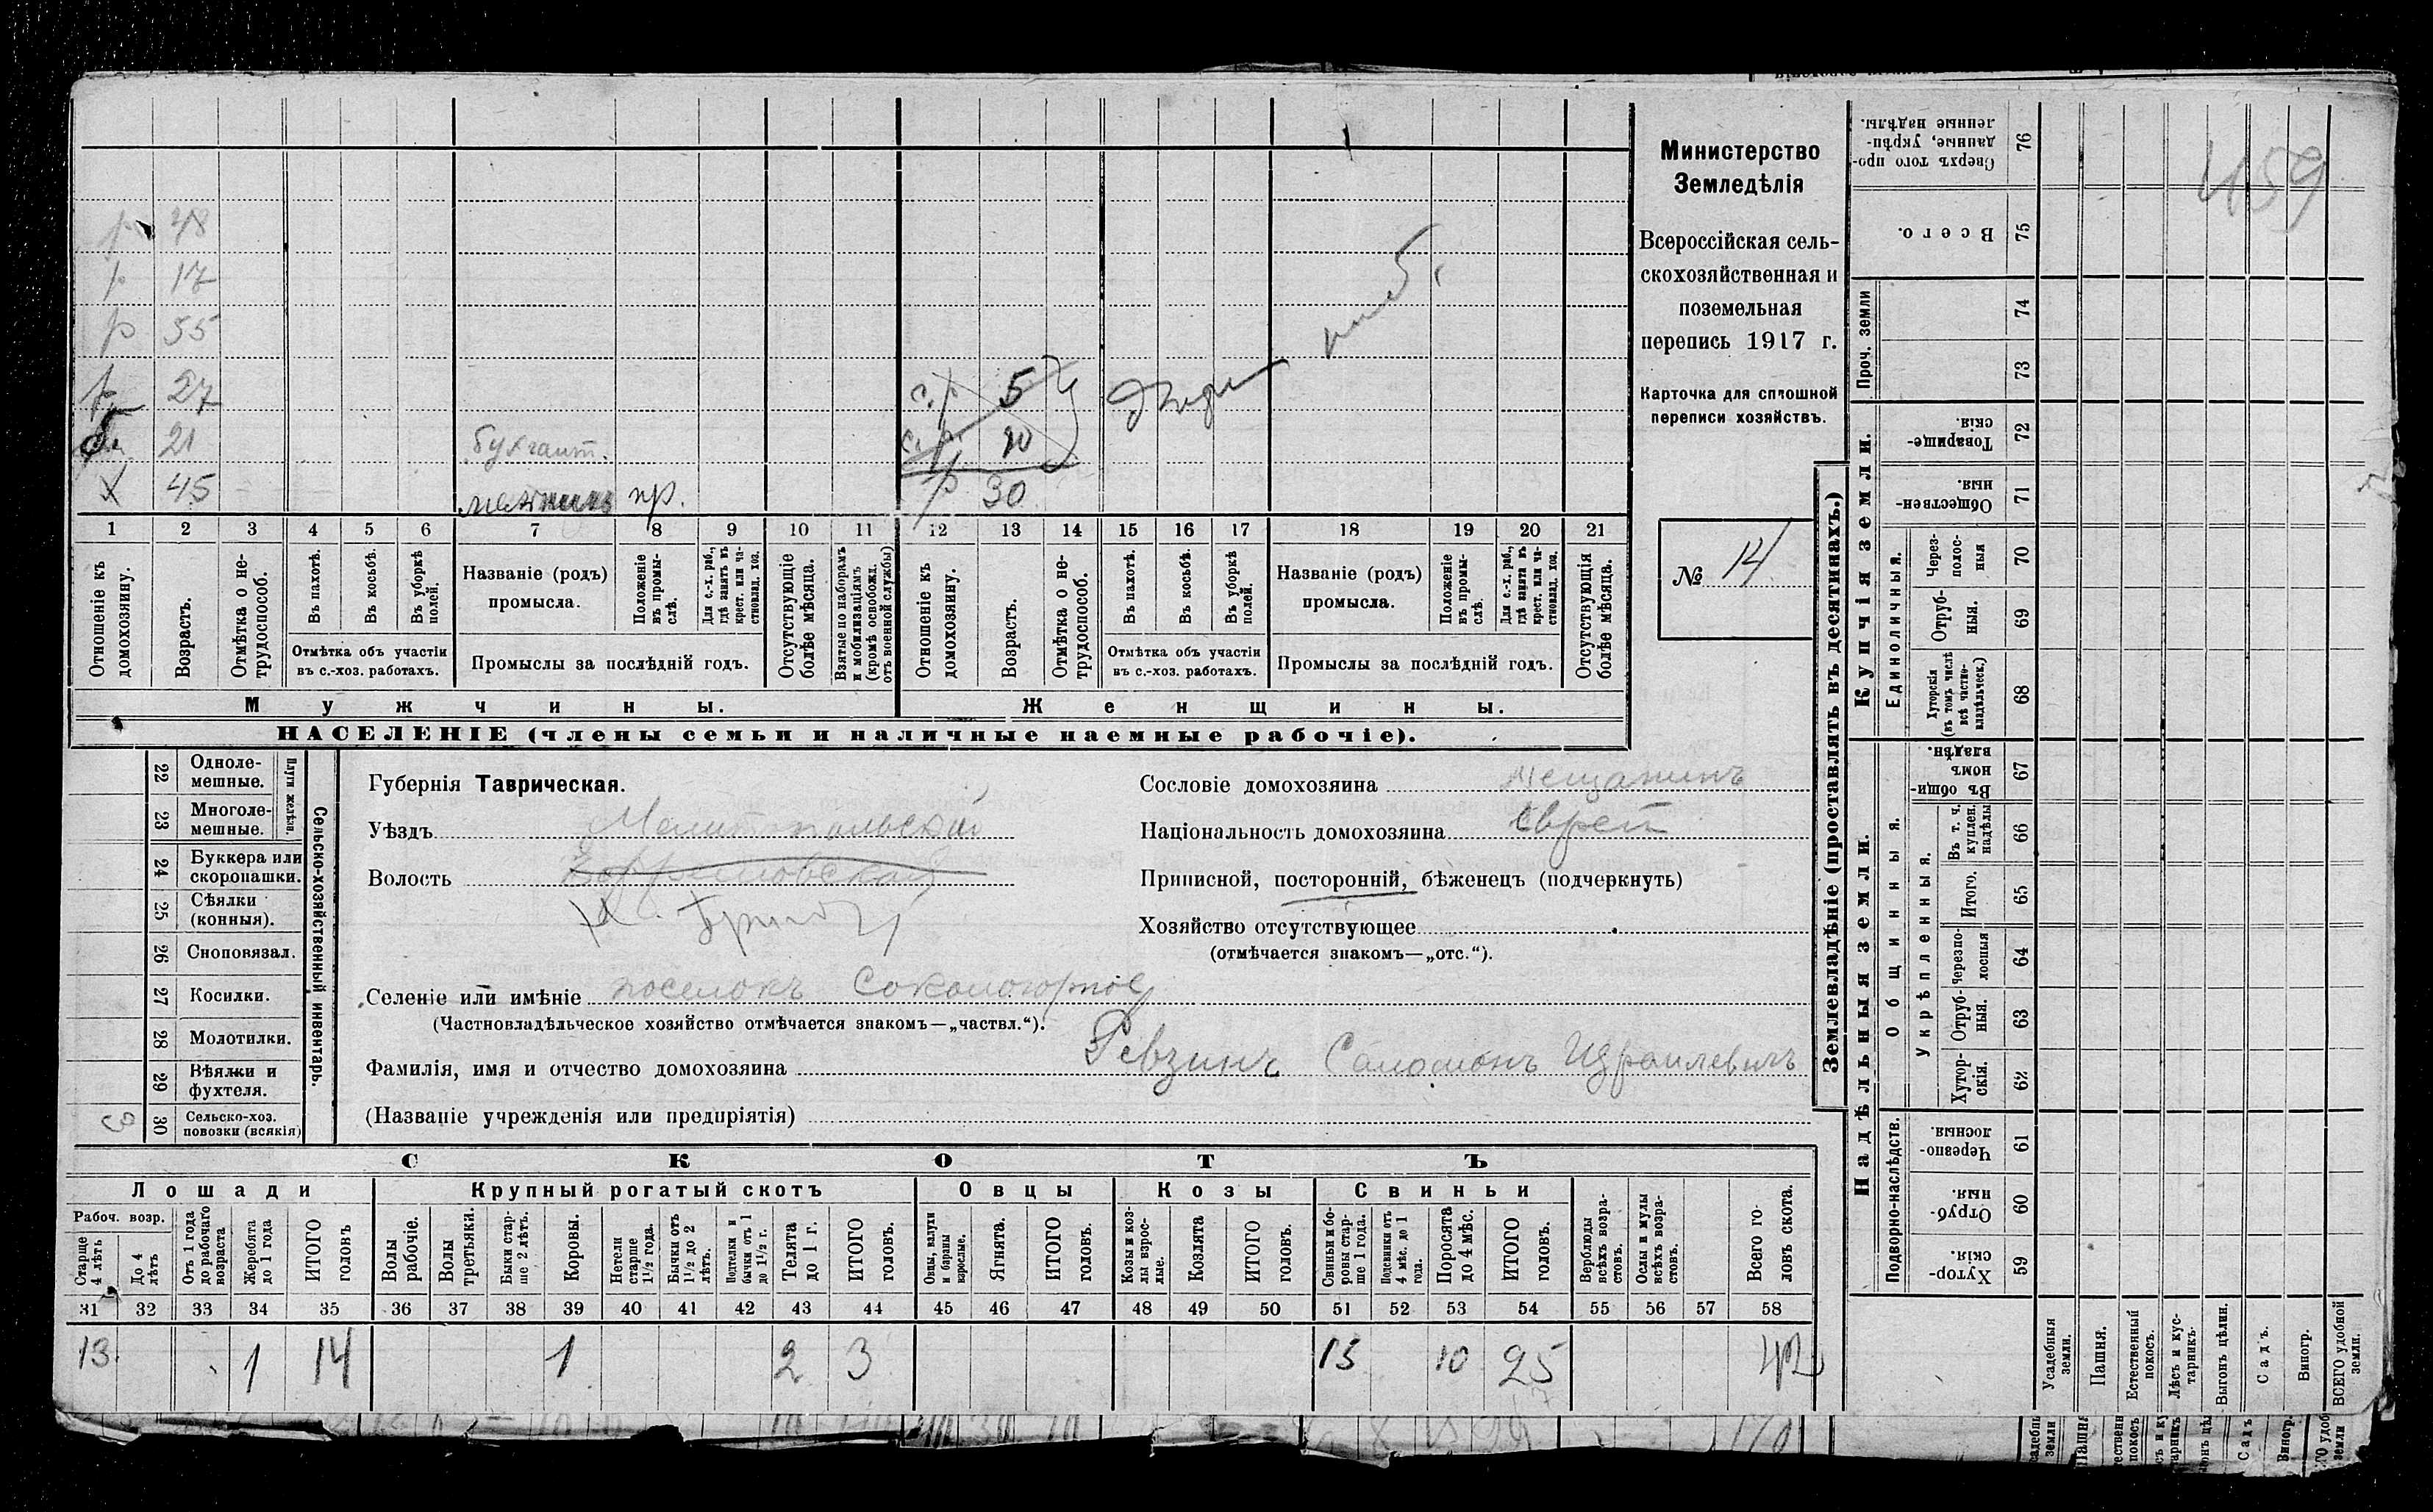 459
Министерство
Земледѣлія
Всероссійская сель-
скохозяйственная и
поземельная
перепись 1917 г.
Карточка для сплошной
переписи хозяйствъ.
№ 14
р 48
р 17
р 55
р 27 с.р 5
21 бухгалт. с.р. 10
х 45 пр. р 30
1 2 3 4 5 6 7 8 9 10 11 12 13 14 15 16 17 18 19 20 21
Отношеніе къ домохозяину.
Возрастъ.
Отмѣтка о не-трудоспособ.
Въ пахотѣ.
Въ косьбѣ.
Въ уборкѣ полей.
Отмѣтка объ участіи
въ с.-хоз. работахъ.
Названіе (родъ)
промысла.
Положеніе въ промы-слѣ.
Для с.-х. раб., гдѣ занятъ въ крест. или ча-стновлад. хоз.
Промыслы за послѣдній годъ.
Отсутствующіе болѣе мѣсяца.
Взятые по наборамъ и мобилизаціямъ (кромѣ освобожд. отъ военной службы)
Отношеніе къ домохозяину.
Возрастъ.
Отмѣтка о не-трудоспособ.
Въ пахотѣ.
Въ косьбѣ.
Въ уборкѣ полей.
Отмѣтка объ участіи
въ с.-хоз. работахъ.
Названіе (родъ)
промысла.
Положеніе въ промы-слѣ.
Для с.-х. раб., гдѣ занята въ крест. или ча-стновлад. хоз.
Промыслы за послѣдній годъ.
Отсутствующія болѣе мѣсяца.
Мужчины. Женщины.
НАСЕЛЕНІЕ (члены семьи и наличные наемные рабочіе).
Сельско-хозяйственный инвентарь.
Плуги желѣзн.
22 Одноле-мешные.
23 Многоле-мешные.
24 Буккера или скоропашки.
25 Сѣялки (конныя).
26 Сноповязал.
27 Косилки.
28 Молотилки.
29 Вѣялки и фухтеля.
30 Сельско-хоз. повозки (всякія) 3
Губернія Таврическая.
Уѣздъ Мелитопольскій
Волость
Селеніе или имѣніе поселокъ Сокологорное
(Частновладѣльческое хозяйство отмѣчается знакомъ—„частвл.“).
Фамилія, имя и отчество домохозяина Ревзинъ Соломонъ Израилевичъ
(Названіе учрежденія или предпріятія)
Сословіе домохозяина Мещанинъ
Національность домохозяина Еврей
Приписной, посторонній, бѣженецъ (подчеркнуть)
Хозяйство отсутствующее
(отмѣчается знакомъ—„отс.“).
СКОТЪ
Лошади Крупный рогатый скотъ Овцы Козы Свиньи
Рабоч. возр.
Старше 4 лѣтъ
До 4 лѣтъ
Отъ 1 года до рабочаго возраста
Жеребята до 1 года
ИТОГО головъ
Волы рабочіе.
Волы третьяки.
Быки стар-ше 2 лѣтъ.
Коровы.
Нетели старше 1½ года.
Бычки отъ 1½ до 2 лѣтъ.
Подтелки и бычки отъ 1 до 1½ г.
Телята до 1 г.
ИТОГО головъ.
Овцы, валухи и бараны взрослые.
Ягнята.
ИТОГО головъ.
Козы и коз-лы взрос-лые.
Козлята
ИТОГО головъ.
Свиньи и бо-ровы стар-ше 1 года.
Подсвинки отъ 4 мѣс. до 1 года.
Поросята до 4 мѣс.
ИТОГО головъ.
Верблюды всѣхъ возра-стовъ.
Ослы и мулы всѣхъ возра-стовъ.
Всего го-ловъ скота.
31 32 33 34 35 36 37 38 39 40 41 42 43 44 45 46 47 48 49 50 51 52 53 54 55 56 57 58
13 1 14 1 2 3 15 10 25 42
Землевладѣніе (проставлять въ десятинахъ.)
Надѣльныя земли. Купчія земли. Проч. земли
Подворно-наслѣдств.
Общинныя.
Укрѣпленныя.
Единоличныя.
76 Сверхъ того про-данные, укрѣп-ленные надѣлы.
75 Всего.
74
73
72 Товарище-скія.
71 Обществен-ныя.
70 Через-полос-ныя
69 Отруб-ныя.
68 Хуторскія (въ томъ числѣ всѣ частно-владѣльческ.)
67 Въ общи-номъ владѣн.
66 Въ т. ч. куплен. надѣлы
65 Итого.
64 Черезпо-лосныя
63 Отруб-ныя.
62 Хутор-скія.
61 Черезпо-лосныя.
60 Отруб-ныя.
59 Хутор-скія.
Усадебныя земли.
Пашня.
Естественый покосъ.
Лѣсъ и кус-тарникъ.
Выгонъ цѣлин.
Садъ.
Виногр.
ВСЕГО удобной земли.